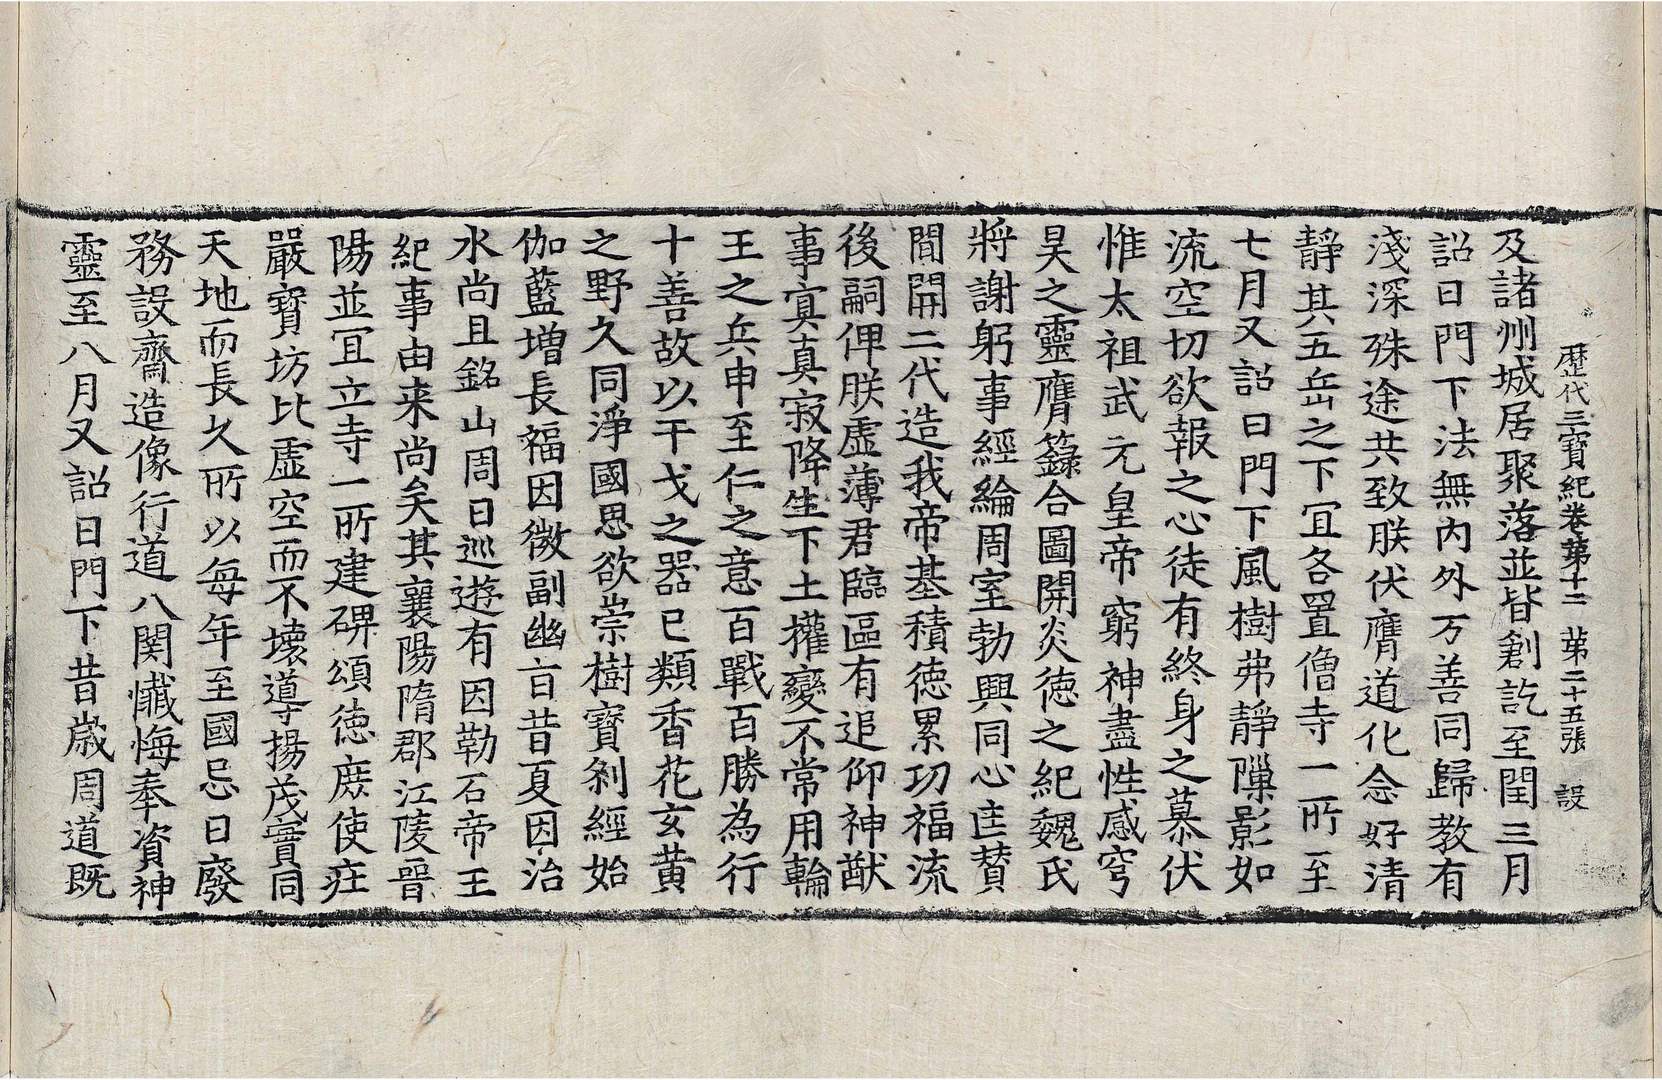 歴代三寶紀卷第十二 第二十五張 設
及諸州城居聚落並皆創訖至閏三月
詔曰門下法無內外万善同歸教有
淺深殊途共致朕伏膺道化念好清
靜其五岳之下冝各置僧寺一所至
七月又詔曰門下風樹弗靜隟影如
流空切欲報之心徒有終身之慕伏
惟太祖武元皇帝窮神盡性感穹
昊之靈膺籙合圖開炎徳之紀魏氏
將謝躬事經綸周室勃興同心匡賛
閒開二代造我帝基積徳累功福流
後嗣俾朕虛薄君臨區有追仰神猷
事冥真寂降生下土權變不常用輪
王之兵申至仁之意百戰百勝為行
十善故以干戈之器已類香花玄黃
之野久同淨國思欲崇樹寶剎經始
伽藍增長福因微副幽旨昔夏因治
水尚且銘山周曰巡遊有因勒石帝王
紀事由来尚矣其襄陽隋郡江陵晉
陽並冝立寺一所建碑頌徳庶使莊
嚴寶坊比虛空而不壞導揚茂實同
天地而長久所以每年至國忌日廢
務設齋造像行道八関懺悔奉資神
靈至八月又詔曰門下昔歲周道既